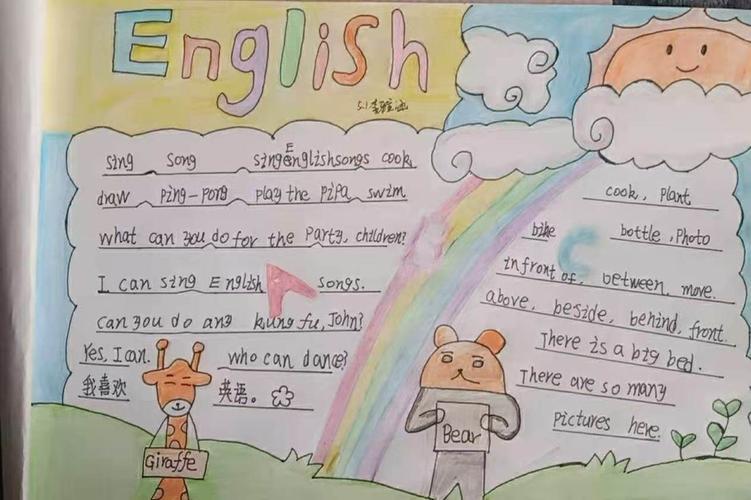 English
5.1
sing song singEenglishsongs cook,
draw ping-pong play the pipa swim
what can you do for the party, children?
I can sing English songs.
Can you do any kung fu, John?
Yes, I can. who can dance?
我喜欢 英语。
Giraffe
cook, plant
bike bottle, photo
infront of, between, move.
above, beside, behind, front
There is a big bed.
There are so many
pictures here.
Bear